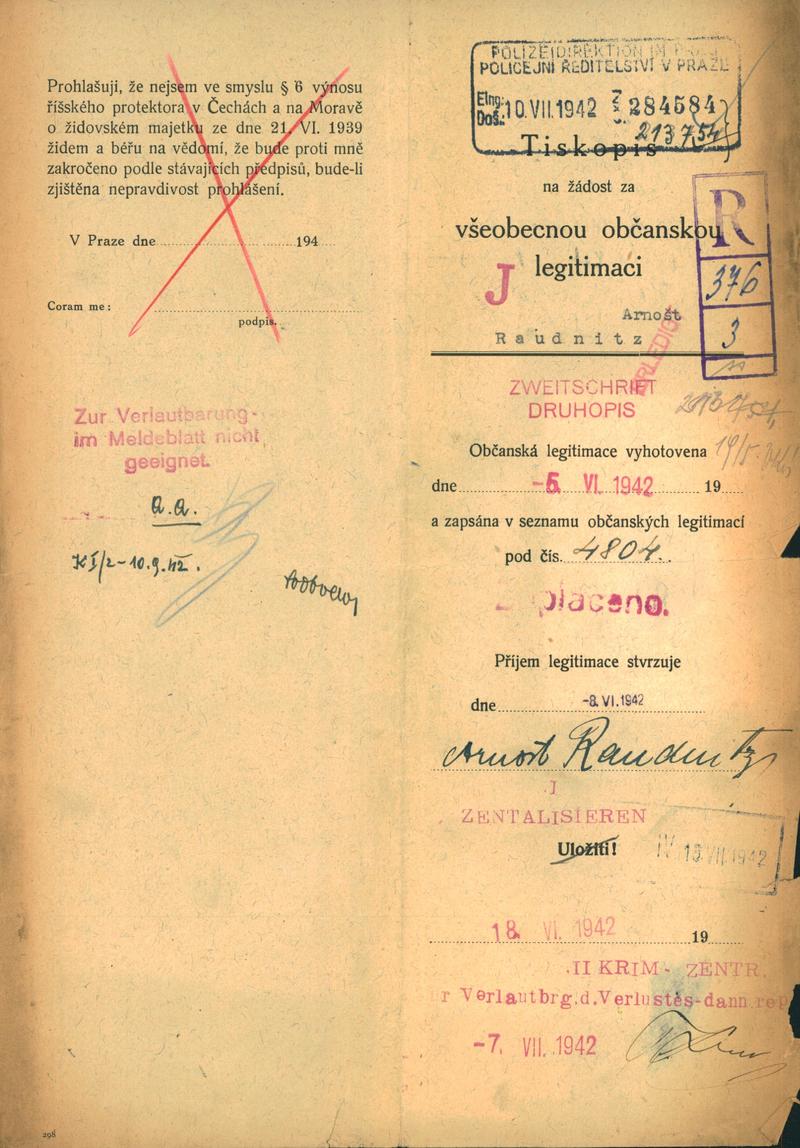 Prohlašuji, že nejsem ve smyslu § 6 výnosu
říšského protektora v Čechách a na Moravě
o židovském majetku ze dne 21. VI. 1939
židem a béřu na vědomí, že bude proti mně
zakročeno podle stávajících předpisů, bude-li
zjištěna nepravdivost prohlášení.
V Praze dne 194
Coram me:
podpis.
Zur Verlautbarung
im Meldeblatt nicht
geeignet.
a.a.
K I/2-10.9.42.
298
POLIZEIDIREKTION IM PRAG
POLICEJNÍ ŘEDITELSTVÍ V PRAZE
Eing:
Doš: 10.VII.1942 284584
213754
Tiskopis
na žádost za
všeobecnou občanskou
J legitimaci
R
376
3
Arnošt
Raudnitz
ERLEDIGT
ZWEITSCHRIFT
DRUHOPIS
Občanská legitimace vyhotovena
dne -5. VI. 1942 19
a zapsána v seznamu občanských legitimací
pod čís. 4804.
placeno.
Příjem legitimace stvrzuje
dne -8.VI.1942
Arnošt Raudnitz
J
ZENTALISIEREN
Uložiti!
13.VII.1942
18. VI. 1942 19
II KRIM- ZENTR.
r Verlautbrg.d.Verlustes-dann rep
-7. VII. 1942